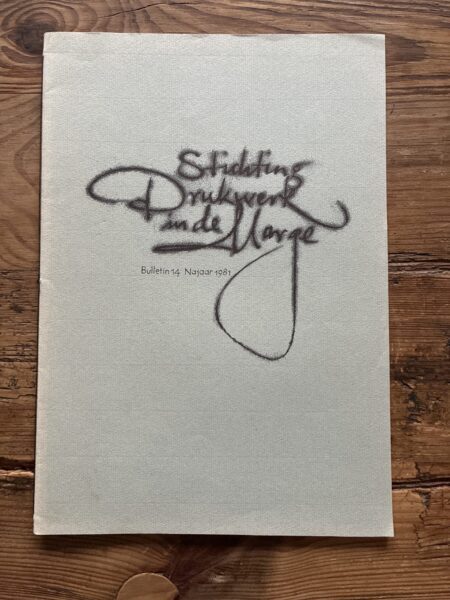 Stichting
Drukwerk
in de Marge
Bulletin 14 Najaar 1981